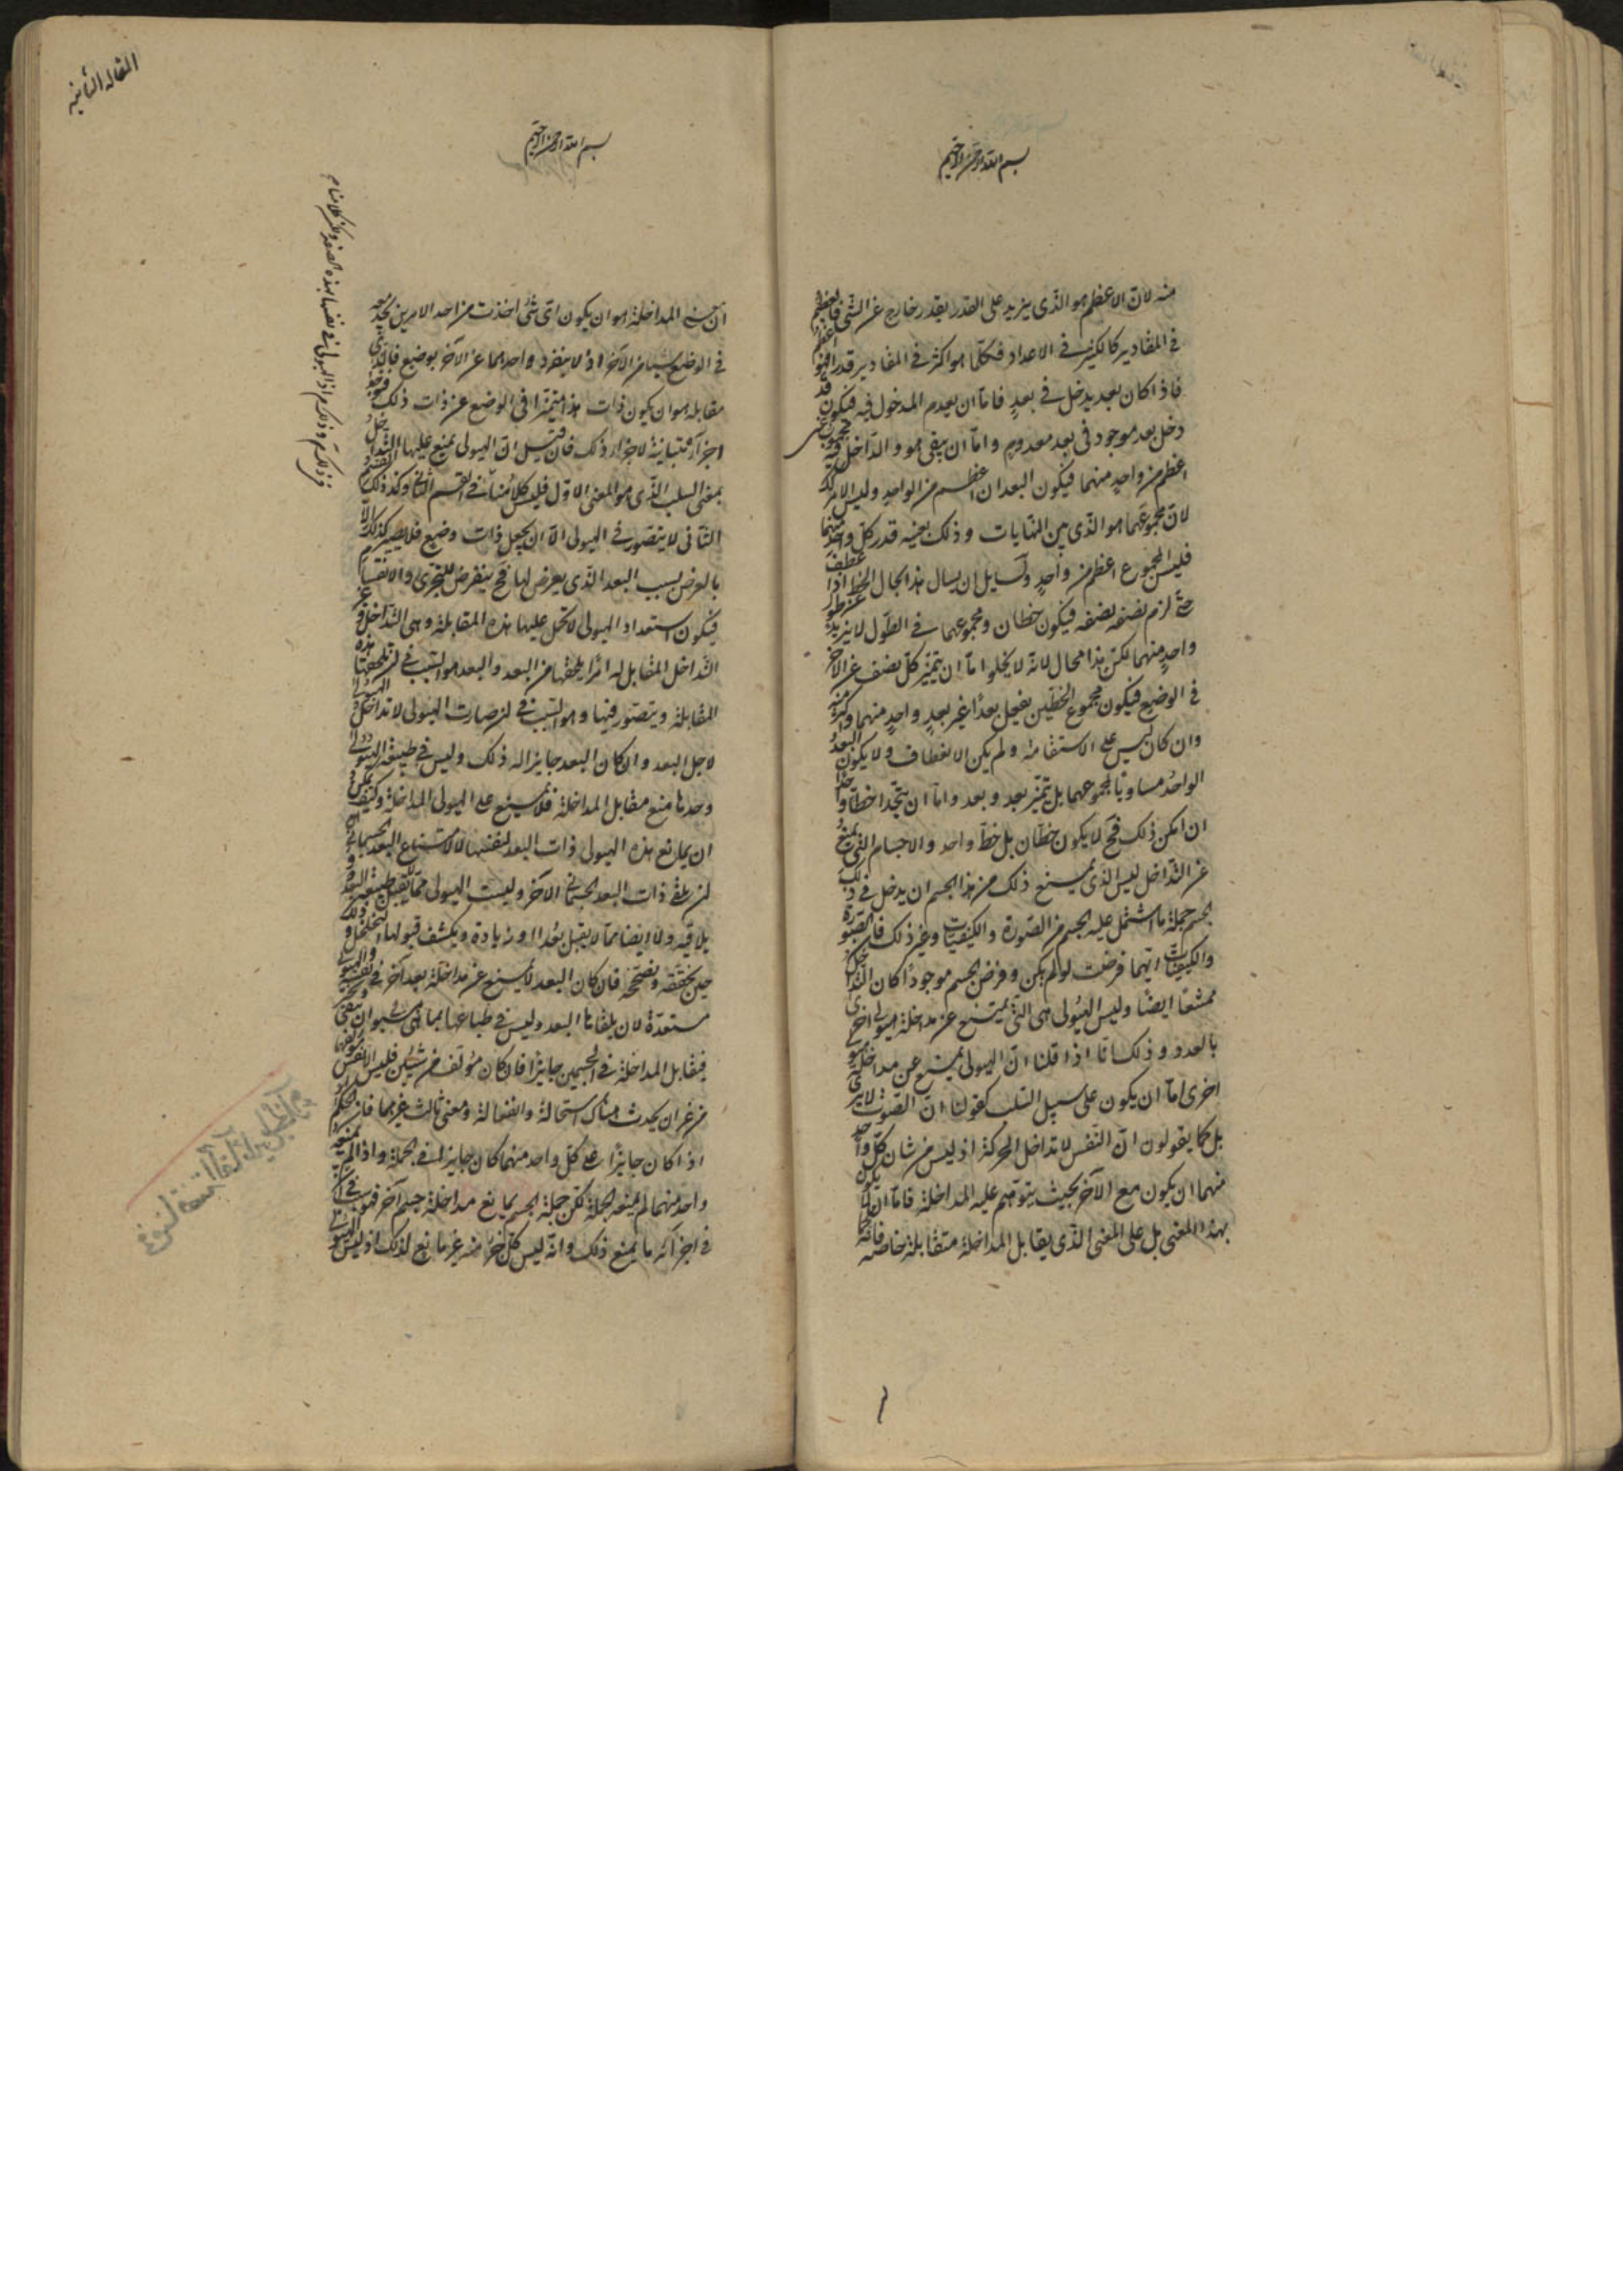 بسم الله الرحمن الرحيم
منه لانّ الاعظم هو الّذى يزيد على القدر بقدر خارج عن الشى فالعظيم
فى المقادير كالكثير فى الاعداد فكلّما هو اكثر فى المقادير قدرا فهو اعظم
فاذا كان بعد يدخل فى بعد فامّا ان يعدم المدخول فيه فيكون قد
دخل بعد موجود فى بعد معدوم وامّا ان يبقى هو والدّاخل فيه
اعظم من واحد منهما فيكون البعدان اعظم من الواحد وليس الامر كذلك
لانّ مجموعهما هو الّذى بين النهايات وذلك بعينه قدر كلّ واحد منهما
فليس المجموع اعظم من واحد ولسايل ان يسال هذا الحال الخط اذا عطف
حتّى لزم نصفه نصفه فيكون خطان ومجموعهما فى الطول لا يزيد على طول
واحد منهما لكن هذا محال لانّه لا يخلوا امّا ان يتميّز كلّ نصف عن الاخر
فى الوضع فيكون مجموع الخطّين يفعل بعدا غير بعد واحد منهما واكبر منه
وان كان ليس على الاستقامة ولم يكن الانعطاف ولا يكون البعد
الواحد مساويا لمجموعهما بل يتميّز بعد وبعد وامّا ان يتّحدا خطّا واحدا
ان امكن ذلك فح لا يكون خطّان بل خطّ واحد والاجسام التى يمنع
عن التّداخل ليس الّذى يمنع ذلك من هذا الجسم ان يدخل فى ذلك
الجسم جملة ما اشتمل عليه الجسم من الصّورة والكيفيّات وغير ذلك فانّ الصّورة
والكيفيّات ايّهما فرضت لو لم يكن وفرض الجسم موجودا كان التّداخل
ممتنعا ايضا وليس الهيولى هى الّتى يمتنع عن مداخلة هيولى اخرى
بالعدد وذلك انّا اذا قلنا انّ الهيولى يمتنع عن مداخلة هيولى
اخرى امّا ان يكون على سبيل السّلب كقولنا انّ الصّوت لا يرى
بل كما يقولون انّ النّفس لا تداخل الحركة اذ ليس من شان كلّ واحد
منهما ان يكون مع الآخر بحيث يتوهّم عليه المداخلة فامّا ان لا يكون
بهذا المعنى بل على المعنى الّذى يقابل المداخلة متقابلة خاصّه فانّه كما
المقاله الثانيه
بسم الله الرحمن الرحيم
انّ معنى المداخلة هو ان يكون اىّ شئ اخذت من احد الامرين تجد معه
فى الوضع شيئا من الآخر اذ لا ينفرد واحدهما عن الآخر بوضع فالّذى
مقابله هو ان يكون ذات هذا متميّزا فى الوضع عن ذات ذلك فتوجد
اجزاؤه متباينة لاجزاء ذلك فان قيل انّ الهيولى يمنع عليها التّداخل
بمعنى السلب الّذى هو المعنى الاوّل فليس كلامنا فى القسم الثّانى وكذ ذلك القسم
الثّانى لا يتصوّر فى الهيولى الّا ان يجعل ذات وضع فلا يصير كذلك الّا
بالعرض بسبب البعد الّذى يعرض لها فح ينعرض للتجزى والانقسام
فيكون استعداد الهيولى لا تحمل عليها هذه المقابلة وهى التّداخل وغير
التّداخل المقابل له امرا يلحقها من البعد والبعد هو السّبب فى ان تلحقها هذه
المقابلة ويتصوّر فيها وهو السّبب فى ان صارت الهيولى لا تداخل الهيولى
لاجل البعد وان كان البعد جايزا له ذلك وليس فى طبيعة الهيولى
وحدها منع مقابل المداخلة فلا يمنع على الهيولى المداخلة وكيف يمكن
ان يمانع هذه الهيولى ذات البعد لنفسها لا لامتناع البعد الجسمانى
ان يلقى ذات البعد الجسمانى الآخر وليست الهيولى ممّا تلقى طبيعة البعد
يلاقيه ولا ايضا ممّا لا يقبل بعدا وزيادة ويكشف قبولها التخلخل وذلك
حين نحقّقه ونصحّحه فان كان البعد لا يمنع عن مداخلة بعد آخر والهيولى
مستعدّة لان يلقاها البعد وليس فى طباعها
فيقابل المداخلة فى الجسمين جايز فان كان مؤلّف من شيئين فليس
من غير ان يحدث هناك استحالة وانفعالة ومعنى ثالث غيرهما فانّ الحكم
اذا كان جايزا على كلّ واحد منهما كان جايزا فى الجملة واذا لم يمنعه
واحد منهما لم يمنعه الجملة لكن جملة الجسم يمانع مداخلة جسم آخر فهو
فى اجزائه ما يمنع ذلك وانّه ليس كلّ جزء منه غير مانع لذلك اذ ليس الهيولى